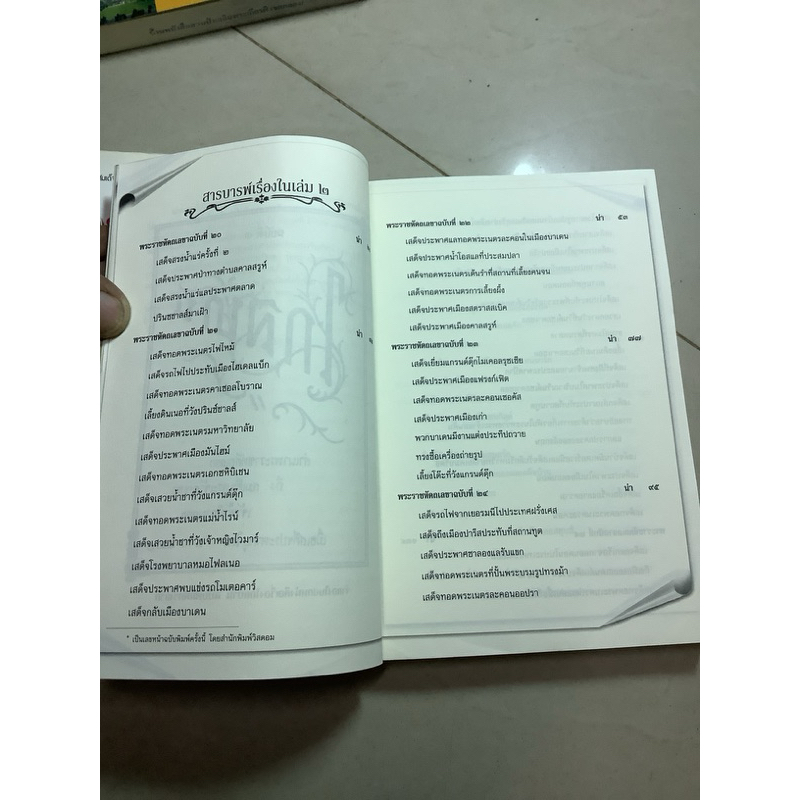 สารบารพ์เรื่องในเล่ม ๒
พระราชหัตถเลขาฉบับที่ ๒๐ น่า
เสด็จสรงน้ำแร่ครั้งที่ ๒
เสด็จประพาศป่าทางตำบลคาลสรูห์
เสด็จสรงน้ำแร่แลประพาศตลาด
ปรินซชาลส์มาเฝ้า
พระราชหัตถเลขาฉบับที่ ๒๑ น่า
เสด็จทอดพระเนตรไฟไหม้
เสด็จรถไฟไปประทับเมืองไฮเดลแบ็ก
เสด็จทอดพระเนตรคาเซอลโบราณ
เลี้ยงดินเนอที่วังปรินซ์ชาลส์
เสด็จทอดพระเนตรมหาวิทยาลัย
เสด็จประพาศเมืองมันไฮม์
เสด็จทอดพระเนตรเอกซหิบิเชน
เสด็จเสวยน้ำชาที่วังแกรนด์ดุ๊ก
เสด็จทอดพระเนตรแม่น้ำไรน์
เสด็จเสวยน้ำชาที่วังเจ้าหญิงไวมาร์
เสด็จโรงพยาบาลหมอไฟลเนอ
เสด็จประพาศพบแข่งรถโมเตอคาร์
เสด็จกลับเมืองบาเดน
* เป็นเลขหน้าฉบับพิมพ์ครั้งนี้ โดยสำนักพิมพ์วิสดอม
พระราชหัตถเลขาฉบับที่ ๒๒ น่า ๕๓
เสด็จประพาศแลทอดพระเนตรละคอนในเมืองบาเดน
เสด็จประพาศน้ำโอสแลที่ประสมปลา
เสด็จทอดพระเนตรเต้นรำที่สถานที่เลี้ยงคนจน
เสด็จทอดพระเนตรการเลี้ยงผึ้ง
เสด็จประพาศเมืองสตราสสเบิค
เสด็จประพาศเมืองคาลสรูห์
พระราชหัตถเลขาฉบับที่ ๒๓ น่า ๗๗
เสด็จเยี่ยมแกรนด์ดุ๊กไมเคอลรุซเซีย
เสด็จประพาศเมืองแฟรงก์เฟิต
เสด็จทอดพระเนตรละคอนเซอคัส
เสด็จประพาศเมืองเก่า
พวกบาเดนมีงานแต่งประทีปถวาย
ทรงซื้อเครื่องถ่ายรูป
เลี้ยงโต๊ะที่วังแกรนด์ดุ๊ก
พระราชหัตถเลขาฉบับที่ ๒๔ น่า ๙๕
เสด็จรถไฟจากเยอรมนีไปประเทศฝรั่งเศส
เสด็จถึงเมืองปารีสประทับที่สถานทูต
เสด็จประพาศชาลองแลรับแขก
เสด็จทอดพระเนตรที่ปั้นพระบรมรูปทรงม้า
เสด็จทอดพระเนตรละคอนออปรา